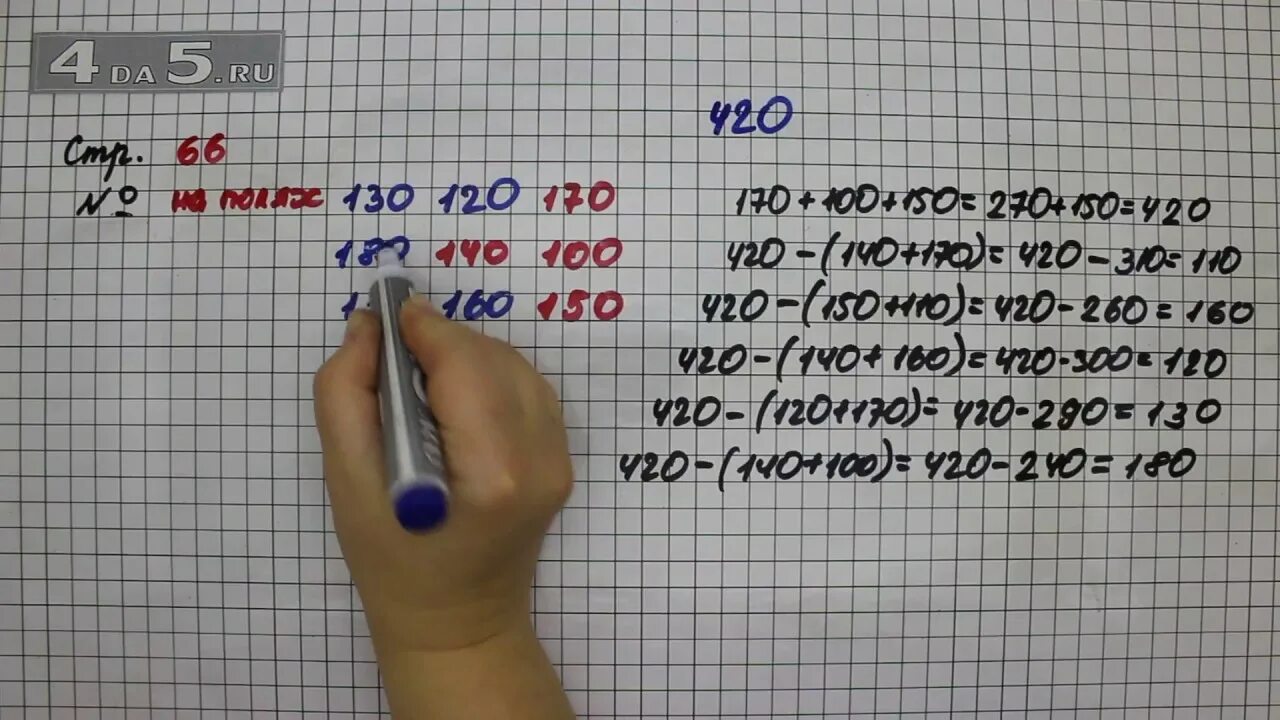 4 DA 5.RU
420
Стр. 66
№ на полях 130 120 170
180 140 100
160 150
170 + 100 + 150 = 270 + 150 = 420
420 - (140 + 170) = 420 - 310 = 110
420 - (150 + 110) = 420 - 260 = 160
420 - (140 + 160) = 420 - 300 = 120
420 - (120 + 170) = 420 - 290 = 130
420 - (140 + 100) = 420 - 240 = 180